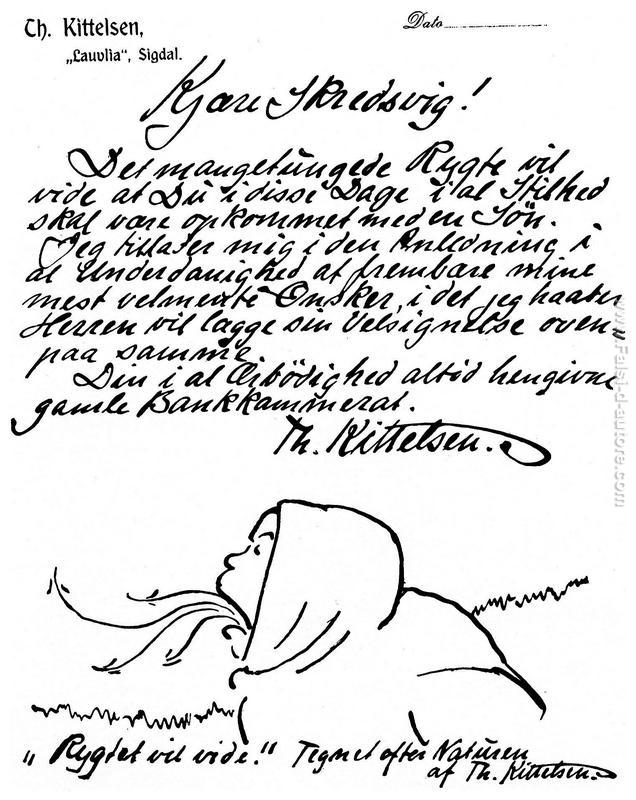 Th. Kittelsen,
„Lauvlia“, Sigdal.
Dato
Kjære Skredsvig!
Det mangetungede Rygte vil
vide at Du i disse Dage i al Stilhed
skal være opkommet med en Sön.
Jeg tillader mig i den Anledning i
al Underdanighed at frembære mine
mest velmente Önsker, i det jeg haaber
Herren vil lægge sin Velsignelse oven-
paa samme
Din i al Ærbödighed altid hengivne
gamle Bankkammerat.
Th. Kittelsen.
„Rygtet vil vide." Tegnet efter Naturen
af Th. Kittelsen.
www.Falsi-d-autore.com